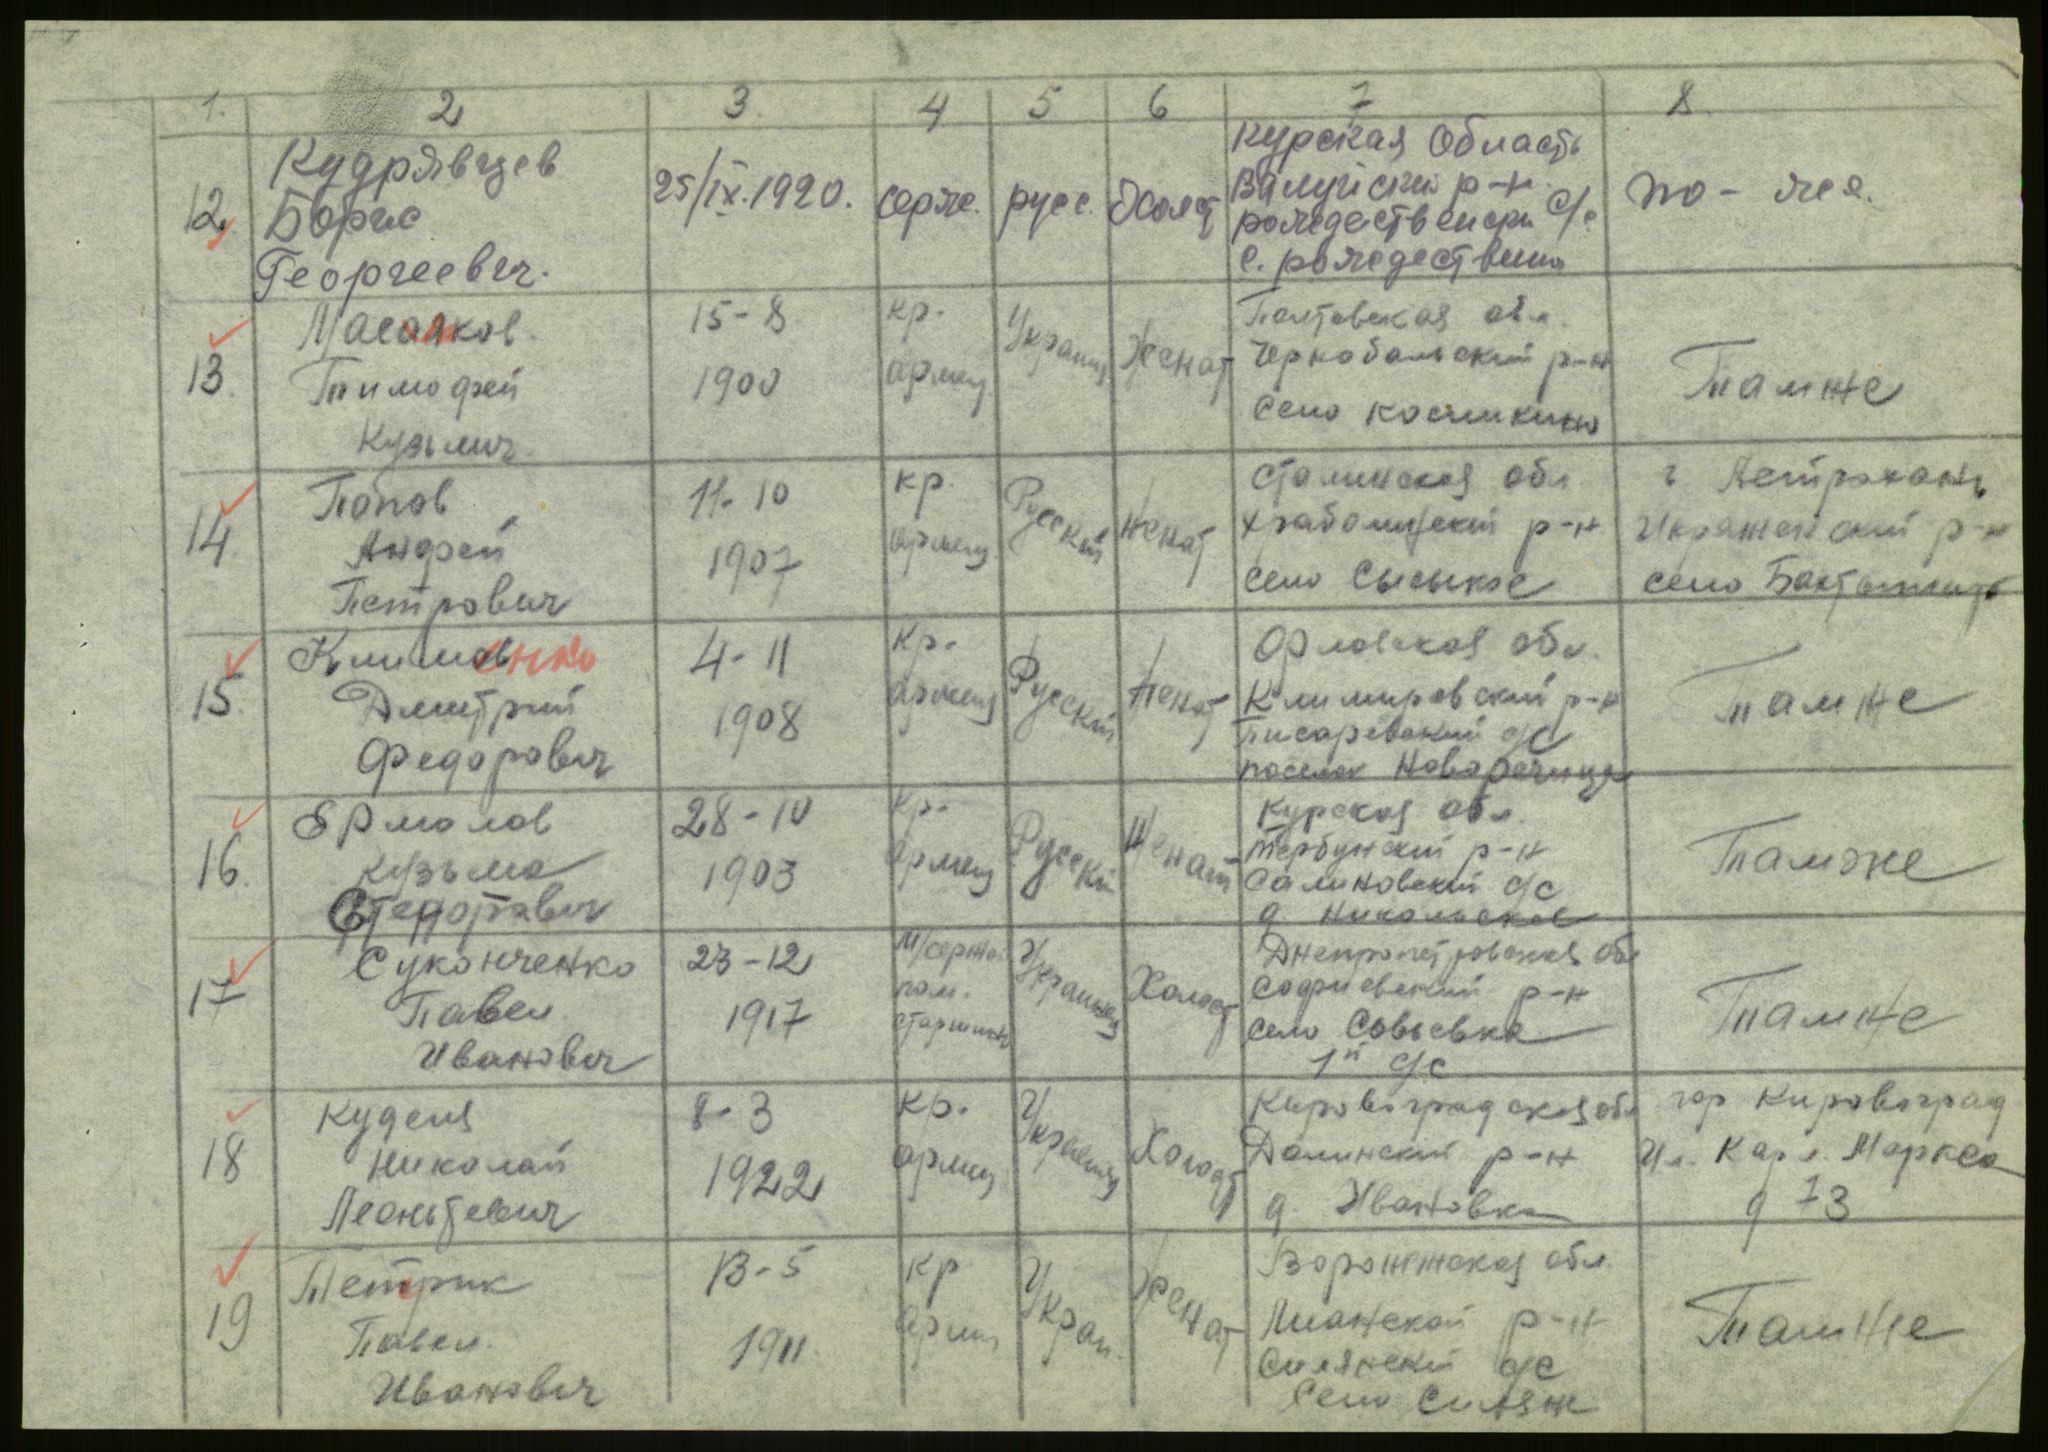 1. 2 3. 4 5 6 7 8.
12. Кудрявцев Борис Георгиевич. 25/IX.1920. серж. русс. Холост Курская Область Валуйский р-н. рождественский с/с с. рождествено то-же.
13. Масалков Тимофей Кузьмич. 15-8 1900 кр. армеец Украинец Женат Полтавская обл. Чернобальский р-н село Кослинино Тамже
14. Попов Андрей Петрович 11-10 1907 кр. армеец Русский Женат Сталинская обл село г Астрохань р-н село
15. Климовенко Дмитрий Федорович 4-11 1908 кр. армеец Русский Женат Орловская обл. Климировский р-н Писаревский с/с поселок Тамже
16. Ермолов Кузьма 28-10 1903 кр. армеец Русский Женат Курская обл. Тербунский р-н Салиновский с/с д Никольское Тамже
17 Суконченко Павел Иванович 23-12 1917 м/сержант пом. старшины Украинец Холост Днепропетровская обл Софиевский р-н село Совьевка 1й с/с Тамже
18 Куделя Николай Леонтьевич 8-3 1922 кр. армеец Украинец Холост Кировоградская обл Долинский р-н д Ивановка гор Кировоград Ул. Карл. Маркса д 73
19 Петрик Павел Иванович 13-5 1911. кр армеец Украи. Женат Воронежская обл. р-н с/с село Тамже